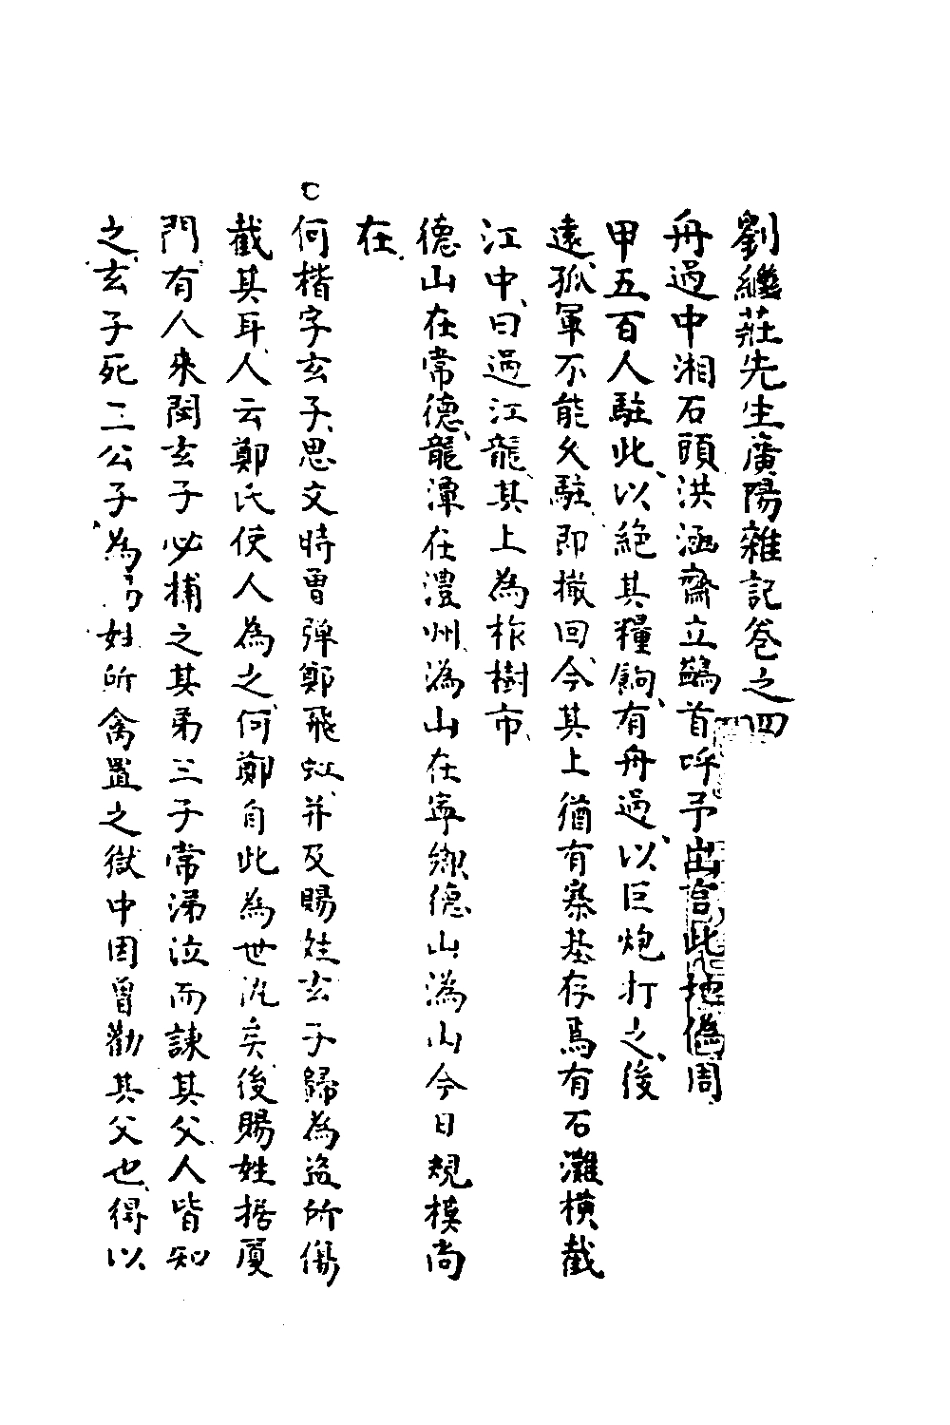 劉繼莊先生廣陽雜記卷之四
舟過中湘石頭洪涵齋立鷁首呼予出言此地偽周
甲五百人駐此以絕其糧餉有舟過以巨炮打之後
遠孤軍不能久駐即撤回今其上猶有寨基存焉有石灘橫截
江中曰過江龍其上為柞樹市
德山在常德龍潭在澧州溈山在寧鄉德山溈山今日規模尚
在
何楷字玄子思文時曾彈鄭飛虹并及賜姓玄子歸為盜所傷
截其耳人云鄭氏使人為之何鄭自此為世仇矣後賜姓据厦
門有人來閩玄子必捕之其弟三子常涕泣而諫其父人皆知
之玄子死二公子為姓所禽置之獄中因曾勸其父也得以